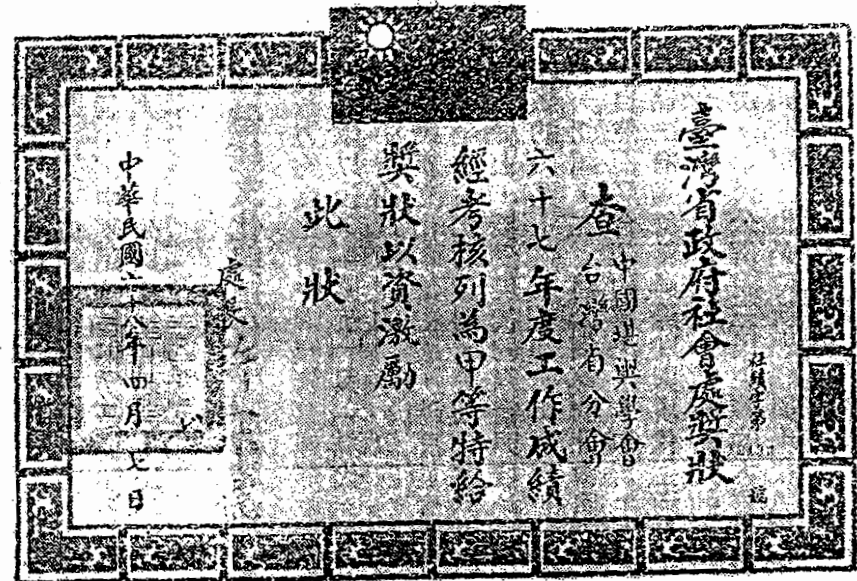 臺灣省政府社會處獎狀
績字第
號
查
中國堪輿學會
台灣省分會
六十七年度工作成績
經考核列為甲等特給
獎狀以資激勵
此狀
處長
中華民國六十八年四月七日